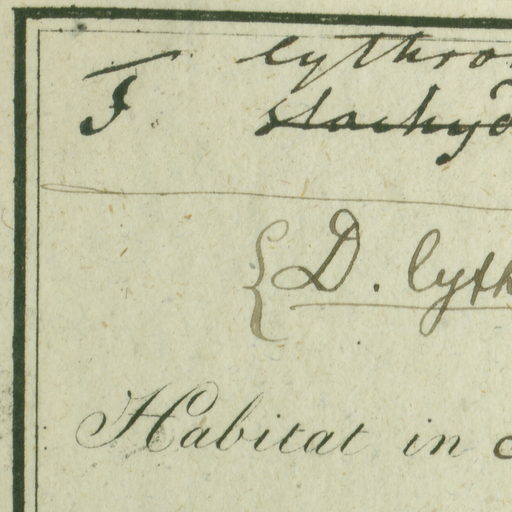 F lythro
stachyo
{ D. lyth
Habitat in